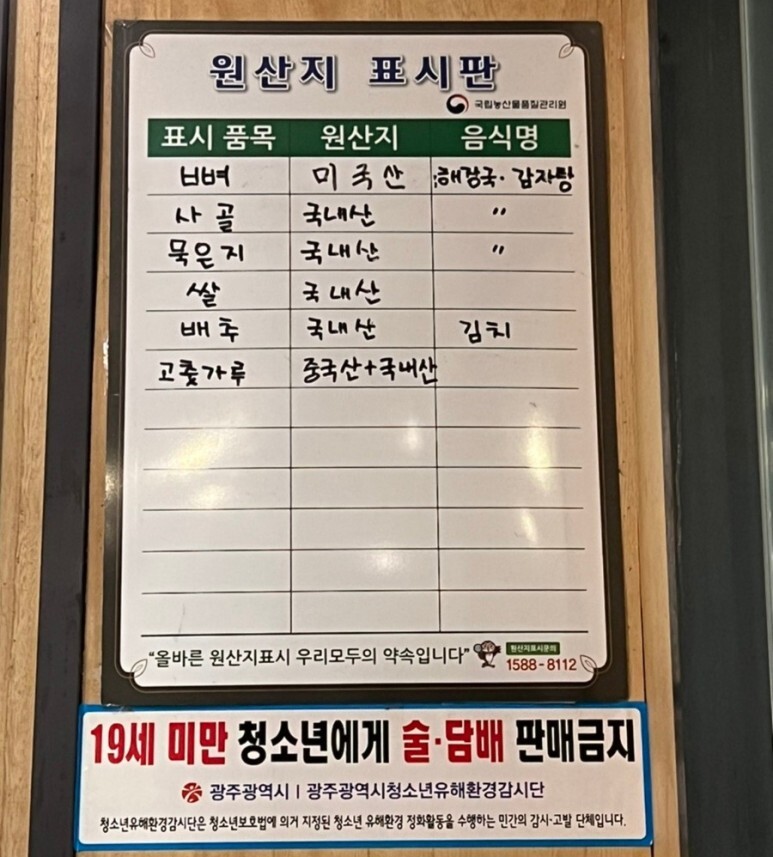 원산지 표시판
국립농산물품질관리원
표시 품목 원산지 음식명
뼈 미국산 해장국· 감자탕
사골 국내산 〃
묵은지 국내산 〃
쌀 국내산
배추 국내산 김치
고춧가루 중국산+국내산
“올바른 원산지표시 우리모두의 약속입니다”
원산지표시문의
1588-8112
19세 미만 청소년에게 술·담배 판매금지
광주광역시 | 광주광역시청소년유해환경감시단
청소년유해환경감시단은 청소년보호법에 의거 지정된 청소년 유해환경 정화활동을 수행하는 민간의 감시·고발 단체입니다.